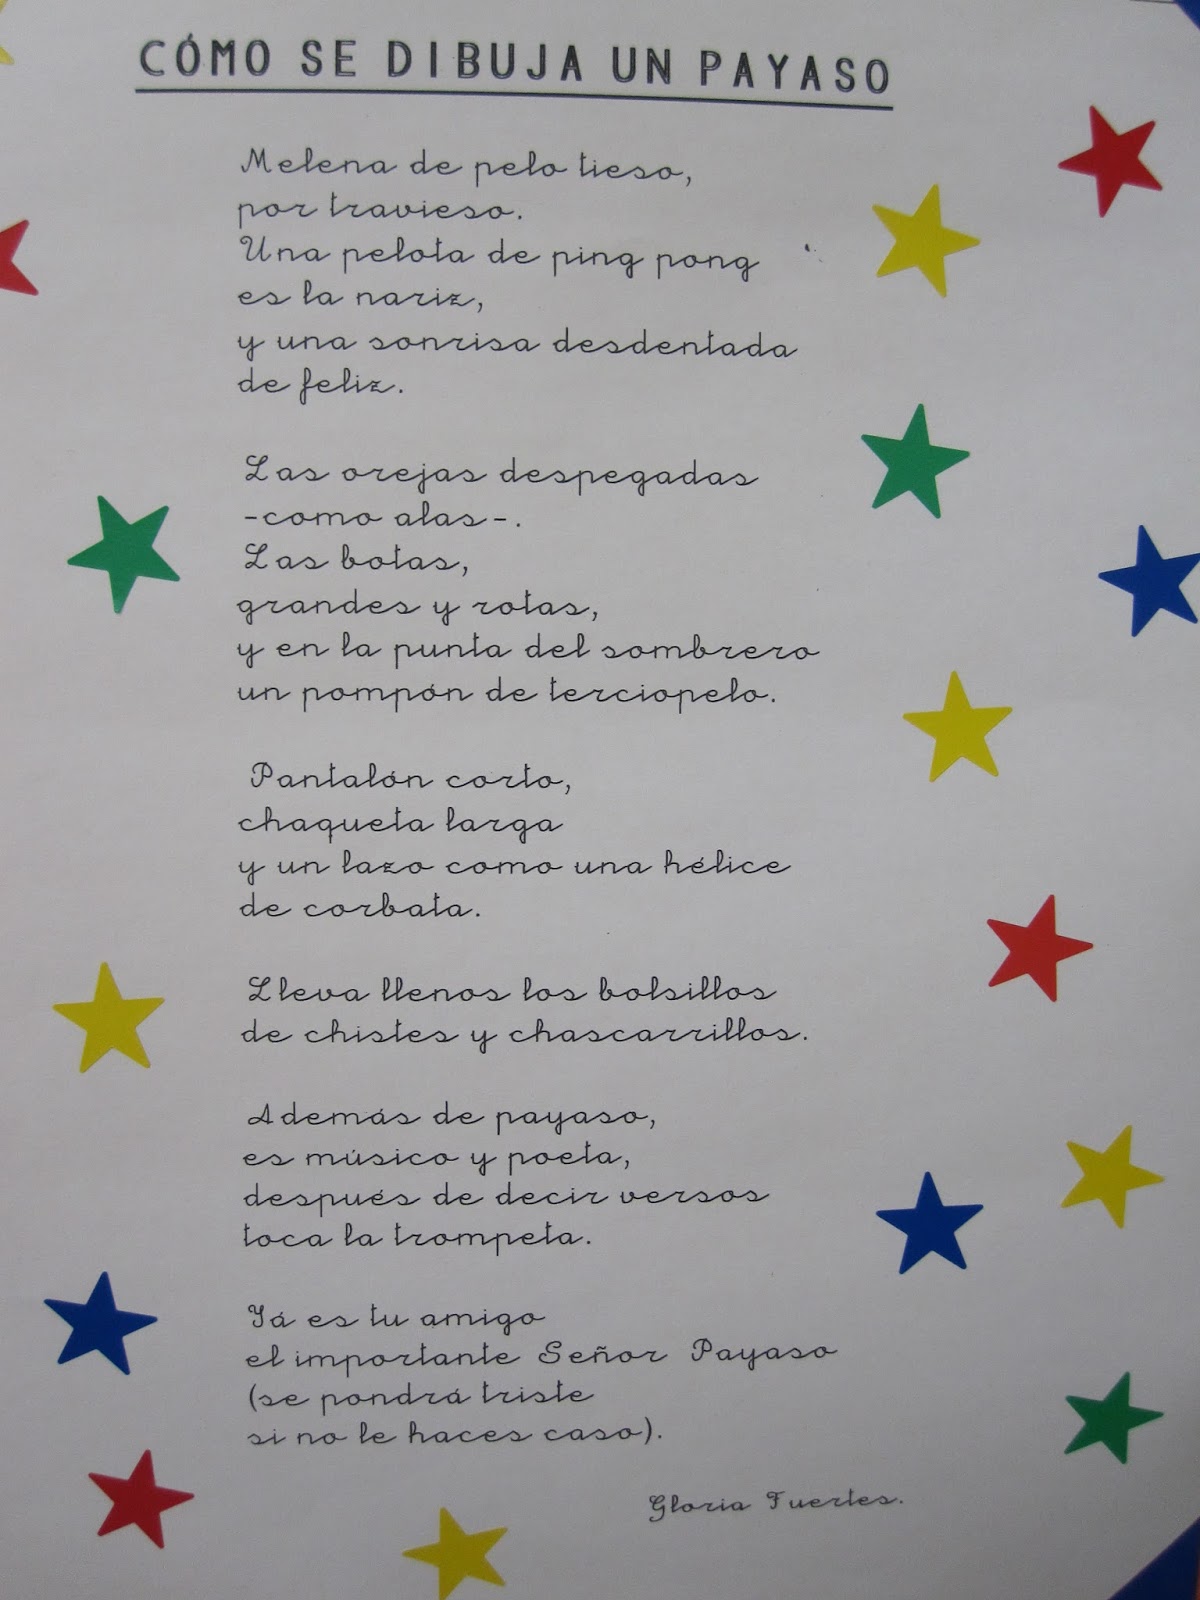 CÓMO SE DIBUJA UN PAYASO
Melena de pelo tieso,
por travieso.
Una pelota de ping pong
es la nariz,
y una sonrisa desdentada
de feliz.
Las orejas despegadas
-como alas-.
Las botas,
grandes y rotas,
y en la punta del sombrero
un pompón de terciopelo.
Pantalón corto,
chaqueta larga
y un lazo como una hélice
de corbata.
Lleva llenos los bolsillos
de chistes y chascarrillos.
Además de payaso,
es músico y poeta,
después de decir versos
toca la trompeta.
Yá es tu amigo
el importante Señor Payaso
(se pondrá triste
si no le haces caso).
Gloria Fuertes.